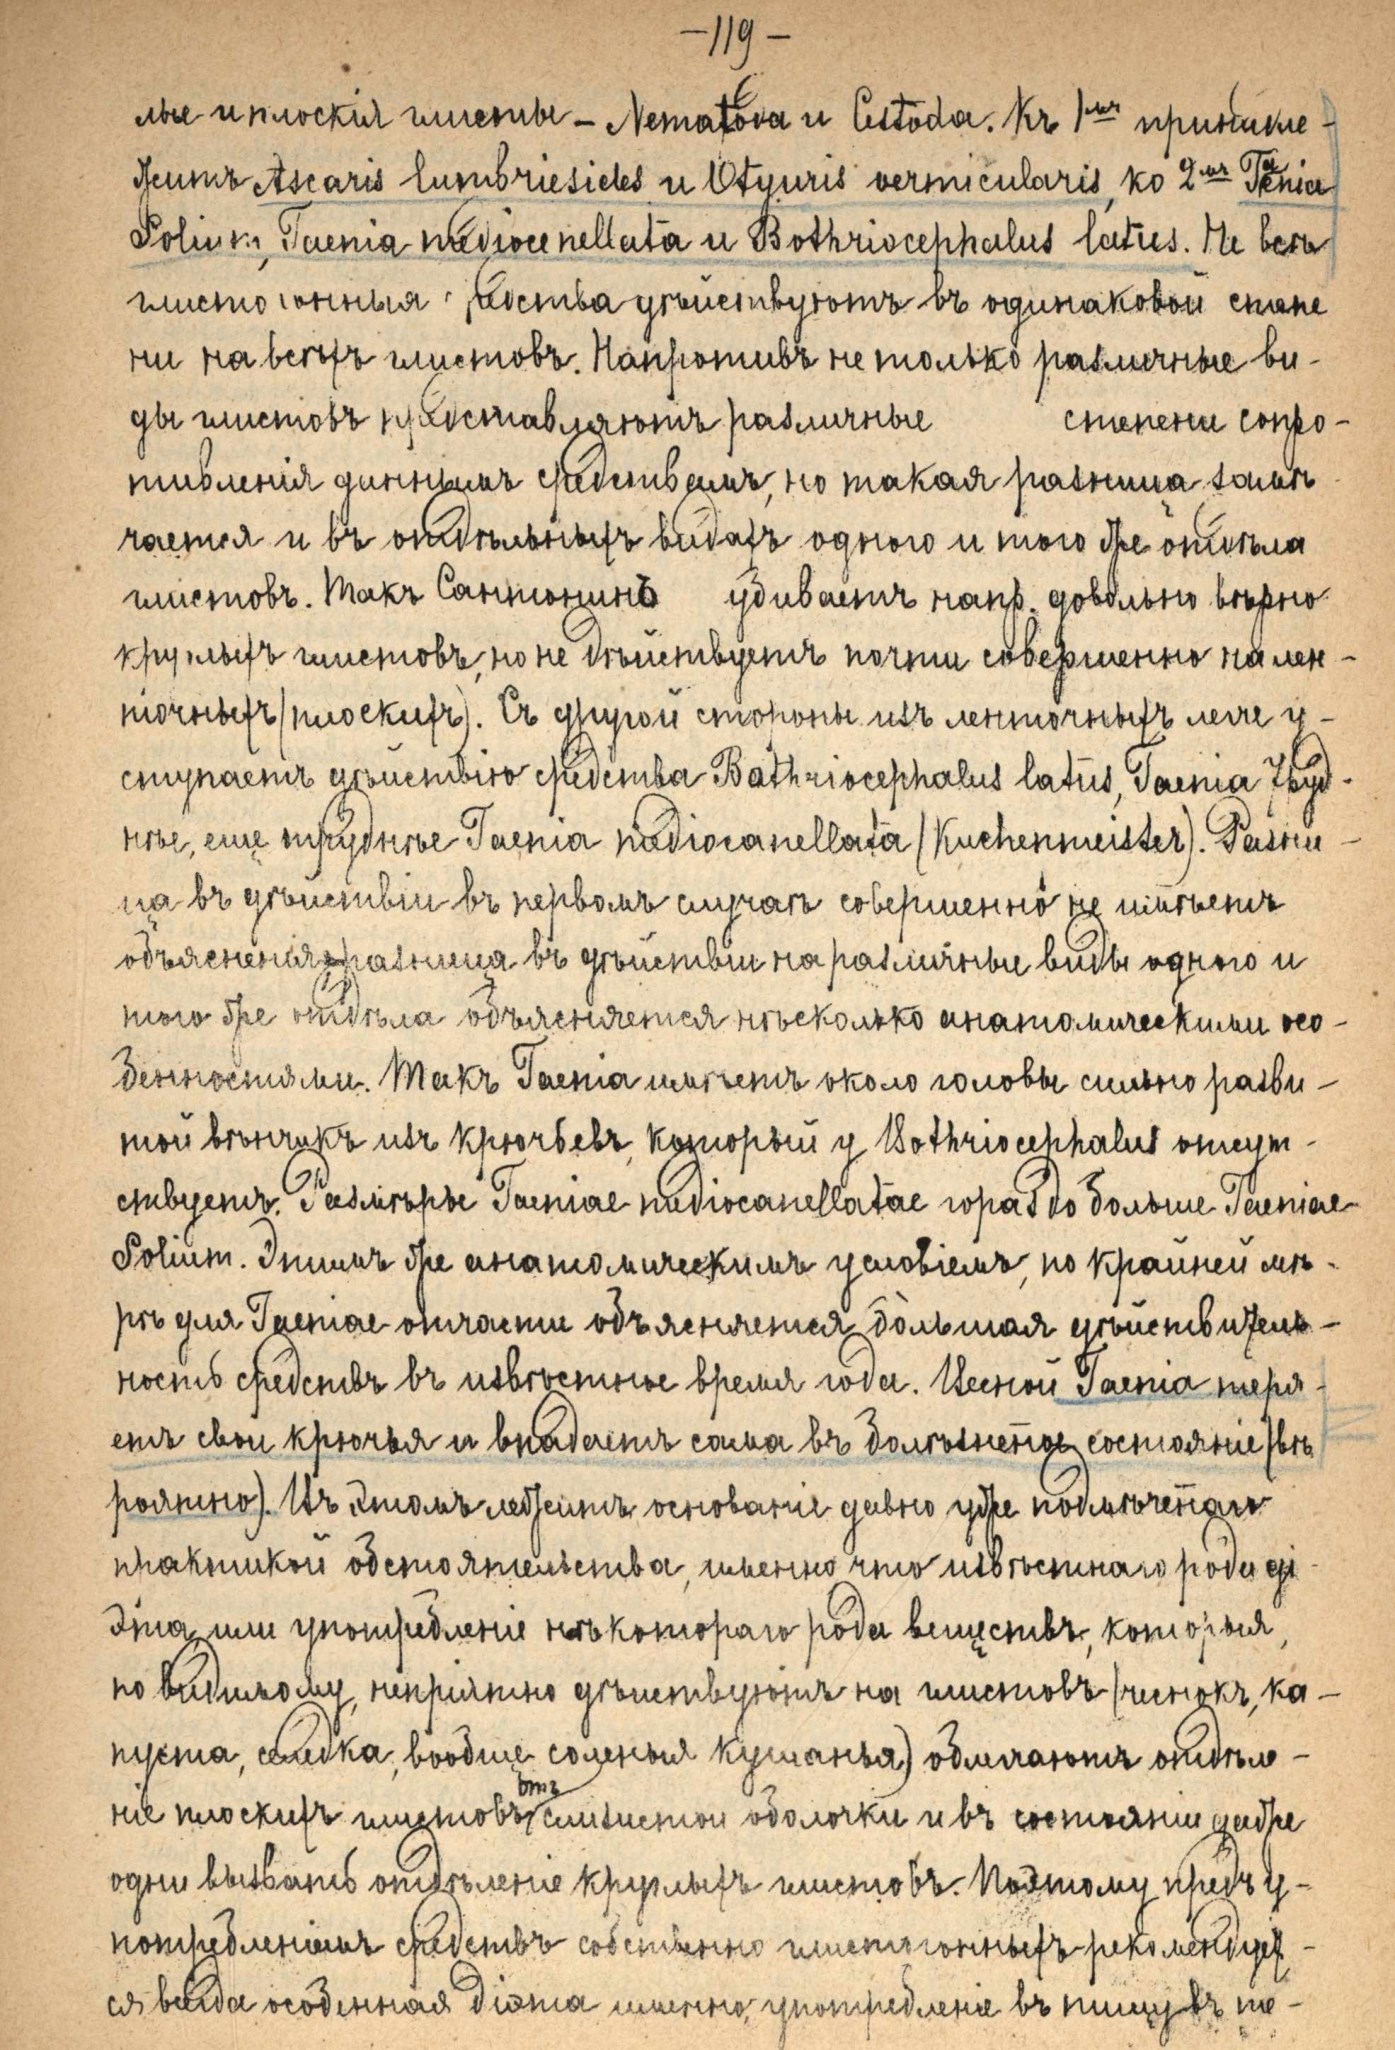 -119-
лые и плоскія глисты - Nematoda и Cestoda. Къ 1мъ принадле-
житъ Ascaris lumbriesides и Oxyuris vermicularis, ко 2мъ Taenia
Solium, Taenia mediocanellata и Bothriocephalus latus. Не всѣ
глистогонныя средства дѣйствуютъ въ одинаковой степе
ни на всѣхъ глистовъ. Напротивъ не только различные ви-
ды глистовъ представляютъ различные степени сопро-
тивленія даннымъ средствамъ, но такая разница замѣ
чается и въ отдѣльныхъ видахъ одного и того же отдѣла
глистовъ. Такъ Сантонинъ убиваетъ напр. довольно вѣрно
круглыхъ глистовъ, но не дѣйствуетъ почти совершенно на лен-
точныхъ (плоскихъ). Съ другой стороны изъ ленточныхъ легче у-
ступаетъ дѣйствію средства Bothriocephalus latus, Taenia труд-
нѣе, еще труднѣе Taenia mediocanellata (Kuchenmeister). Разни-
ца въ дѣйствіи въ первомъ случаѣ совершенно не имѣетъ
объясненія, разница въ дѣйствіи на различные виды одного и
того же отдѣла объясняется нѣсколько анатомическими осо-
бенностями. Такъ Taenia имѣетъ около головы сильно разви-
той вѣнчикъ изъ крючьевъ, который у Bothriocephalus отсут-
ствуетъ. Размѣры Taeniae mediocanellatae гораздо больше Taeniae
Solium. Этимъ же анатомическимъ условіемъ, по крайней мѣ-
рѣ для Taeniae отчасти объясняется большая дѣйствитель-
ность средствъ въ извѣстное время года. Весной Taenia теря-
етъ свои крючья и впадаетъ сама въ болѣзненное состояніе (вѣ
роятно). Въ этомъ лежитъ основаніе давно уже подмѣченнаго
практикой обстоятельства, именно что извѣстнаго рода ді-
эта, или употребленіе нѣкотораго рода веществъ, которыя,
по видимому, непріятно дѣйствуютъ на глистовъ (чеснокъ, ка-
пуста, селедка, вообще соленыя кушанья) облегчаютъ отдѣле-
ніе плоскихъ глистовъ отъ слизистой оболочки и въ состояніи даже
одни вызвать отдѣленіе круглыхъ глистовъ. Поэтому предъ у-
потребленіемъ средствъ собственно глистогонныхъ рекомендует-
ся всегда особенная діэта именно, употребленіе въ пищу въ те-